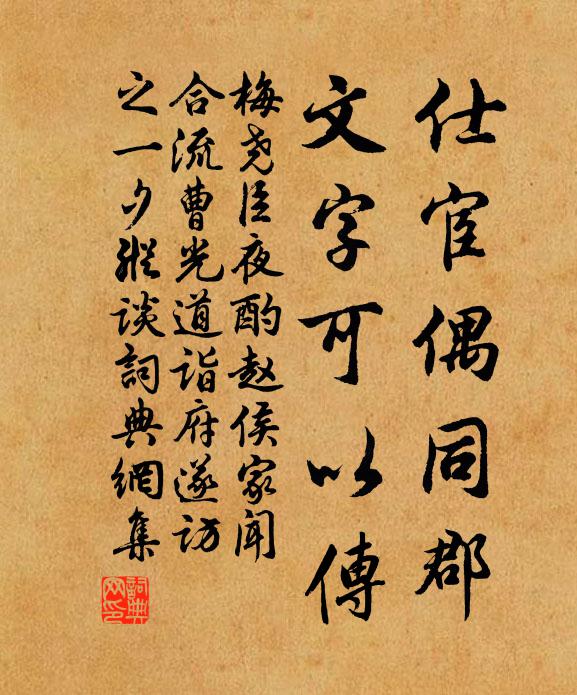 仕宦偶同郡
文字可以傳
梅尧臣夜酌赵侯家闻
合流曹光道詣府遂访
之一夕縱談詞典網集
詞典網印